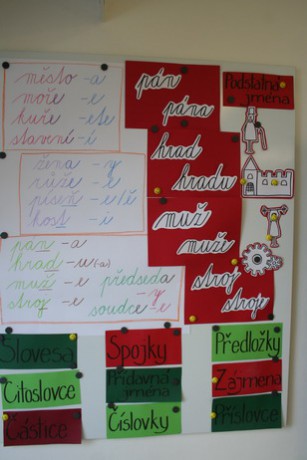 město -a
moře -e
kuře -ete
stavení -í
žena -y
růže -e
píseň -e/ě
kost -i
pán -a
hrad -u(-a)
muž -e
stroj -e
předseda
-y
soudce -e
pán
pána
hrad
hradu
muž
muže
stroj
stroje
Podstatná
jména
Slovesa
Citoslovce
Částice
Spojky
Přídavná
jména
Číslovky
Předložky
Zájmena
Příslovce